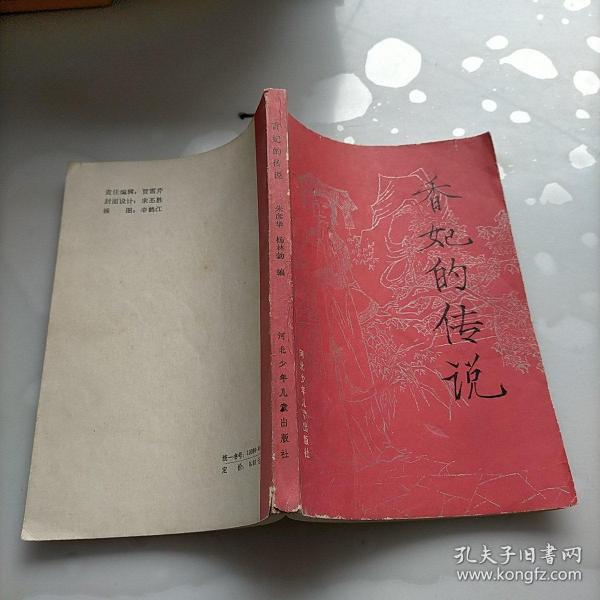 责任编辑：贾雪芹
封面设计：宋丕胜
插 图：辛鹤江
统一书号：
定 价：
香妃的传说
朱彦华 杨林勃 编
河北少年儿童出版社
香妃的传说
河北少年儿童出版社
孔夫子旧书网
www.kongfz.com